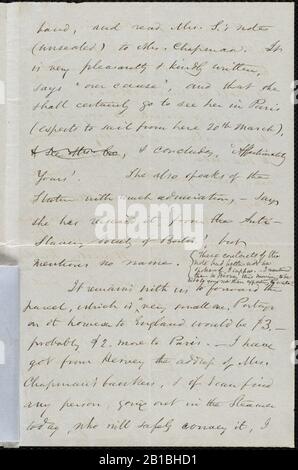 hand, and read Mrs. S.'s note
(unsealed) to Mrs. Chapman. It
is very pleasantly & kindly written,
says "our cause", and that she
shall certainly go to see her in Paris
(expects to sail from here 20th March),
& concludes, 'Affectionately
Yours'. She also speaks of the
Statue with much admiration, - says
she has it from the Anti-
Slavery Society of Boston', but
mentions no name.
these contents of the
note
It remains with us to forward the
parcel, which is very small one. Postage
on it hence to England would be $3, -
probably $2. more to Paris. - I have
got from Hervey the address of Mrs.
Chapman's bankers, & if I can find
any person, going out in the Steamer
today, who will safely convey it, I
alamy
Image ID: 2B1BHD1
www.alamy.com